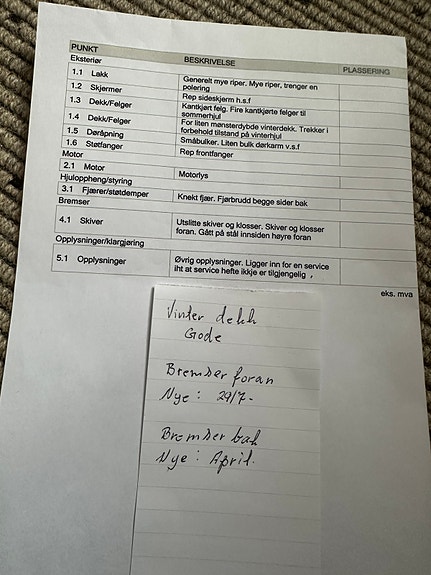 PUNKT BESKRIVELSE PLASSERING
Eksteriør
1.1 Lakk Generelt mye riper. Mye riper, trenger en
polering
1.2 Skjermer Rep sideskjerm h.s.f
1.3 Dekk/Felger Kantkjørt felg. Fire kantkjørte felger til
sommerhjul
1.4 Dekk/Felger For liten mønsterdybde vinterdekk. Trekker i
forbehold tilstand på vinterhjul
1.5 Døråpning Småbulker. Liten bulk dørkarm v.s.f
1.6 Støtfanger Rep frontfanger
Motor
2.1 Motor Motorlys
Hjuloppheng/styring
3.1 Fjærer/støtdemper Knekt fjær. Fjørbrudd begge sider bak
Bremser
4.1 Skiver Utslitte skiver og klosser. Skiver og klosser
foran. Gått på stål innsiden høyre foran
Opplysninger/klargjøring
5.1 Opplysninger Øvrig opplysninger. Ligger inn for en service
iht at service hefte ikkje er tilgjengelig ,
eks. mva
Vinter dekk
Gode
Bremser foran
Nye : 29/7-
Bremser bak
Nye : April.